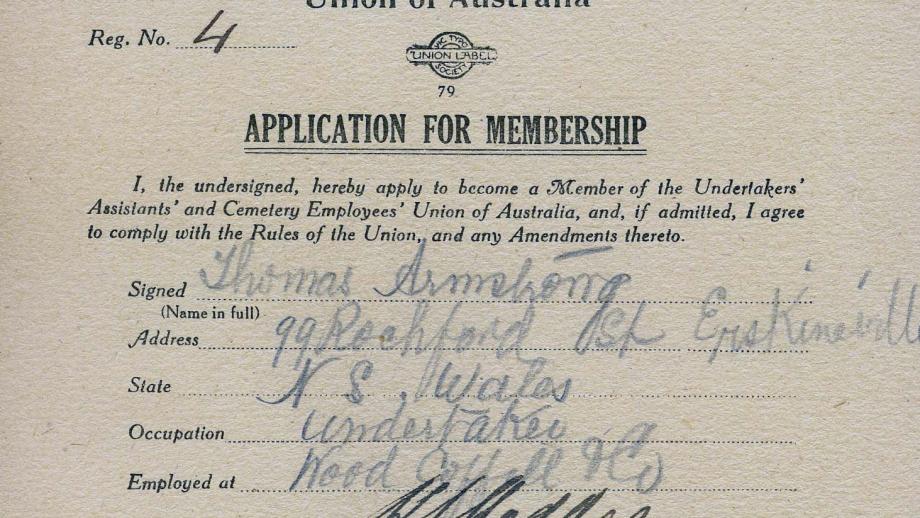 Union of Australia
Reg. No. 4
VIC TYPO
UNION LABEL
SOCIETY
79
APPLICATION FOR MEMBERSHIP
I, the undersigned, hereby apply to become a Member of the Undertakers'
Assistants' and Cemetery Employees' Union of Australia, and, if admitted, I agree
to comply with the Rules of the Union, and any Amendments thereto.
Signed Thomas Armstrong
(Name in full)
Address 99 Rochford St Erskineville
State N S. Wales
Occupation Undertaker
Employed at Wood Coffill & Co